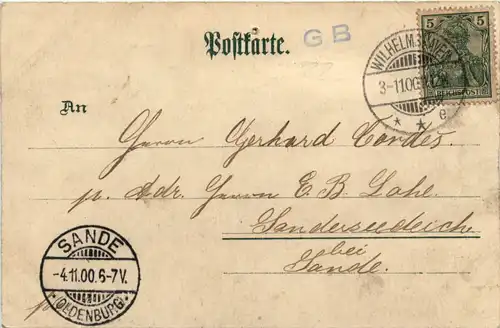 Postkarte.
G B
5
REICHSPOST
WILHELMSHAVEN
3-11.00
* * e
An
Herrn Gerhard Cordes.
p. Adr. Herrn E. B. Lohe.
Sanderseedeich
bei
Sande.
SANDE
-4.11.00.6-7V.
*(OLDENBURG)*